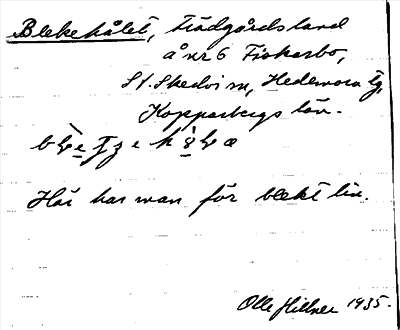 Blekehålet, trädgårdsland
å nr 6 Fiskarbo,
St. Skedvi sn, Hedemora tg,
Kopparbergs län.
Här har man för blekt lin.
Olle Hillner 1935.